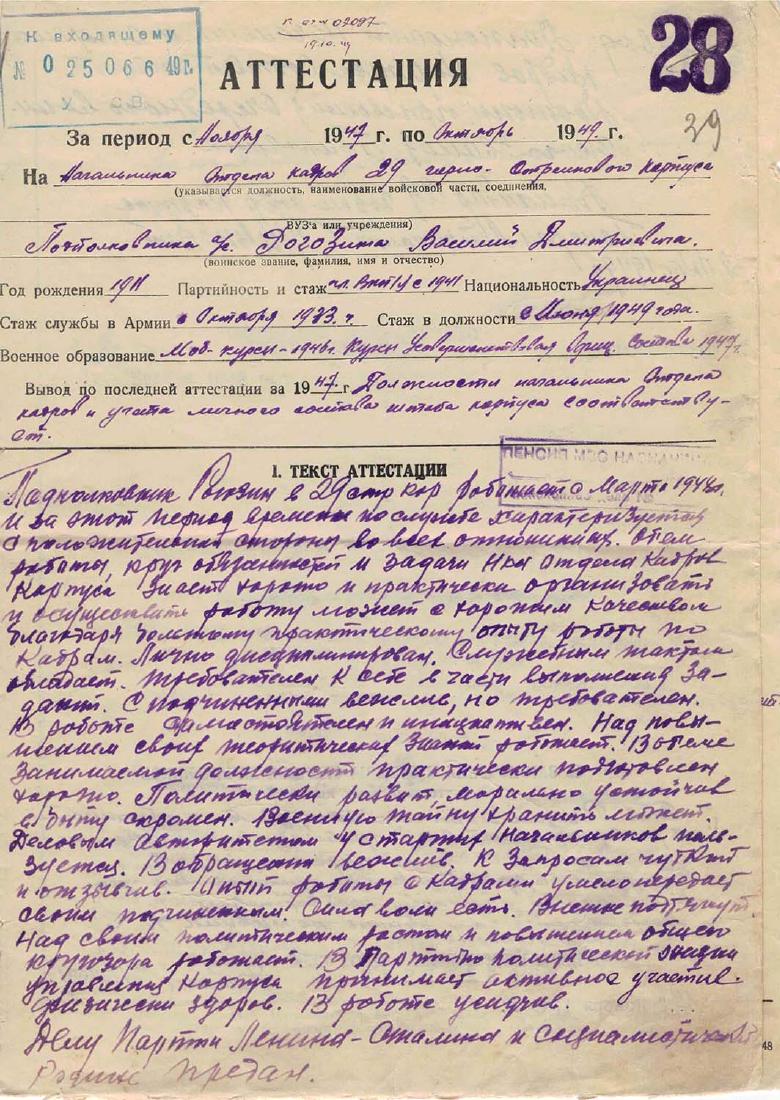 К входящему
№ 025066 49г.
28
29
АТТЕСТАЦИЯ
За период с Ноября 1947 г. по Октябрь 1949 г.
На Начальника Отдела кадров 29 горно-стрелкового корпуса
(указывается должность, наименование войсковой части, соединения,
ВУЗ'а или учреждения)
Подполковника Рогозина Василий Дмитриевича.
(воинское звание, фамилия, имя и отчество)
Год рождения 1911 Партийность и стаж чл. ВКП/б/ с 1941 Национальность Украинец
Стаж службы в Армии с Октября 1933 г. Стаж в должности с Июня 1949 года.
Военное образование Моб-курсы-1946г. Курсы Усовершенствовая Офиц. Состава 1947г.
Вывод по последней аттестации за 1947 г. Должности начальника Отдела
кадров и учета личного состава штаба корпуса соответству-
ет.
ПЕНСИЯ МВО НАЗНАЧЕНА
I. ТЕКСТ АТТЕСТАЦИИ
Подполковник Рогозин в 29 стр кор работает с Марта 1948г.
и за этот период времени по службе характеризуется
с положительной стороны во всех отношениях. Объем
работы, круг обязанностей и задачи Н-ка отдела Кадров
Корпуса знает хорошо и практически организовать
и осуществить работу может с хорошим качеством
благодаря большому практическому опыту работы по
Кадрам. Лично дисциплинирован. Служебным тактом
обладает. Требователен к себе в части выполнения за-
дания. С подчиненными вежлив, но требователен.
В работе самостоятелен и инициативен. Над повы-
шением своих теоритических знаний работает. В объеме
занимаемой должности практически подготовлен
хорошо. Политически развит, морально устойчив
в быту скромен. Военную тайну хранить может.
Деловым авторитетом у старших начальников поль-
зуется. В обращении вежлив. К запросам чуткий
и отзывчив. Опыт работы с кадрами умело передает
своим подчиненным. Сила воли есть. Внешне подтянут.
Над своим политическим ростом и повышением общего
кругозора работает. В партийно политической жизни
управления корпуса принимает активное участие.
Физически здоров. В работе усидчив.
Делу Партии Ленина-Сталина и социалистической
Родине предан.
48